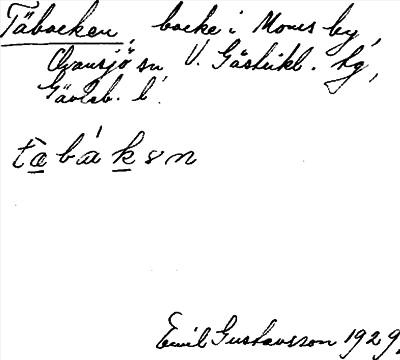 Täbacken, backe i Moms by,
Ovansjö sn V. Gästrikl. hg,
Gävleb. l.
tabákən
Emil Gustavsson 1929.